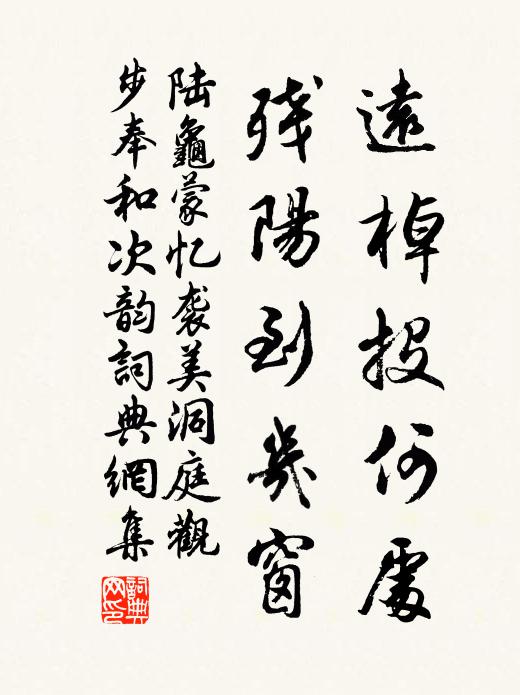 遠棹投何處
殘陽到幾窗
陆龜蒙忆袭美洞庭觀
步奉和次韵詞典網集
詞典網印